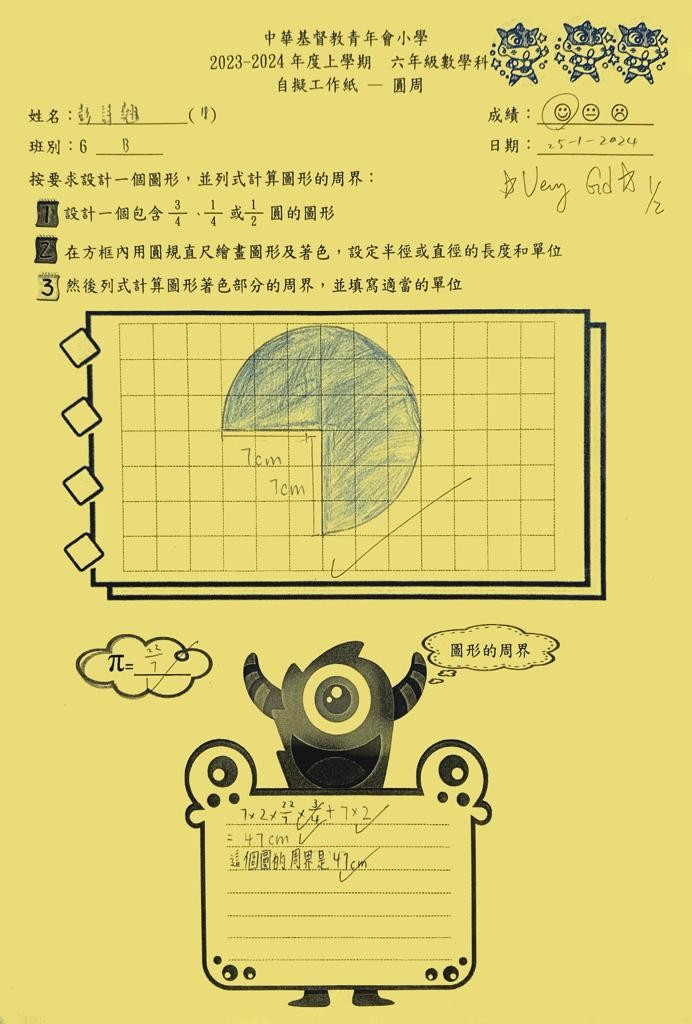 中華基督教青年會小學
2023-2024 年度上學期　六年級數學科
自擬工作紙 — 圓周
姓名：彭詩
成績：
班別：6 B
日期：25-1-2024
按要求設計一個圖形，並列式計算圖形的周界：
☆Very Gd☆ 1/2
1 設計一個包含 3/4 、1/4 或 1/2 圓的圖形
2 在方框內用圓規直尺繪畫圖形及著色，設定半徑或直徑的長度和單位
3 然後列式計算圖形著色部分的周界，並填寫適當的單位
7cm
7cm
π= 22/7
圖形的周界
7×2×22/7×3/4+7×2
= 47cm
這個圖的周界是47cm